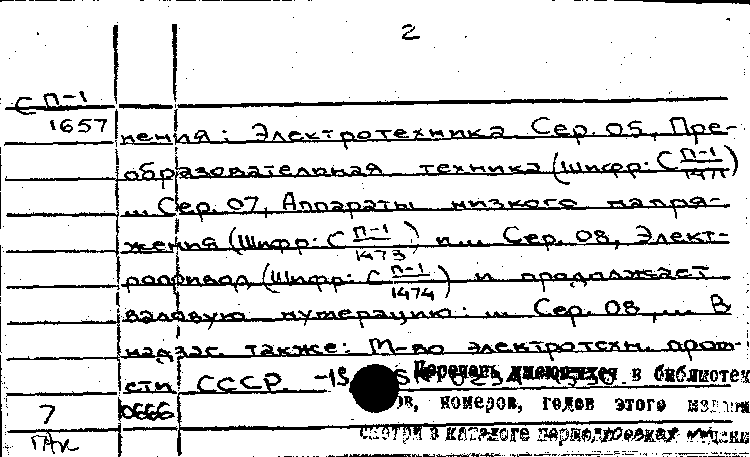 2
С П-1
1657
нения: Электротехника. Сер. 05, Пре-
образовательная техника (Шифр: С П-1/1471)
... Сер. 07, Аппараты низкого напря-
жения (Шифр: С П-1/1473) и ... Сер. 08, Элект-
ропривод (Шифр: С П-1/1474) и продолжает
валовую нумерацию: ... Сер. 08, ... В
надзаг. также: М-во электротехн. пром-
сти СССР.
Перечень имеющихся в библиотек
номеров, годов этого издани
смотри в каталоге периодических
7 0666